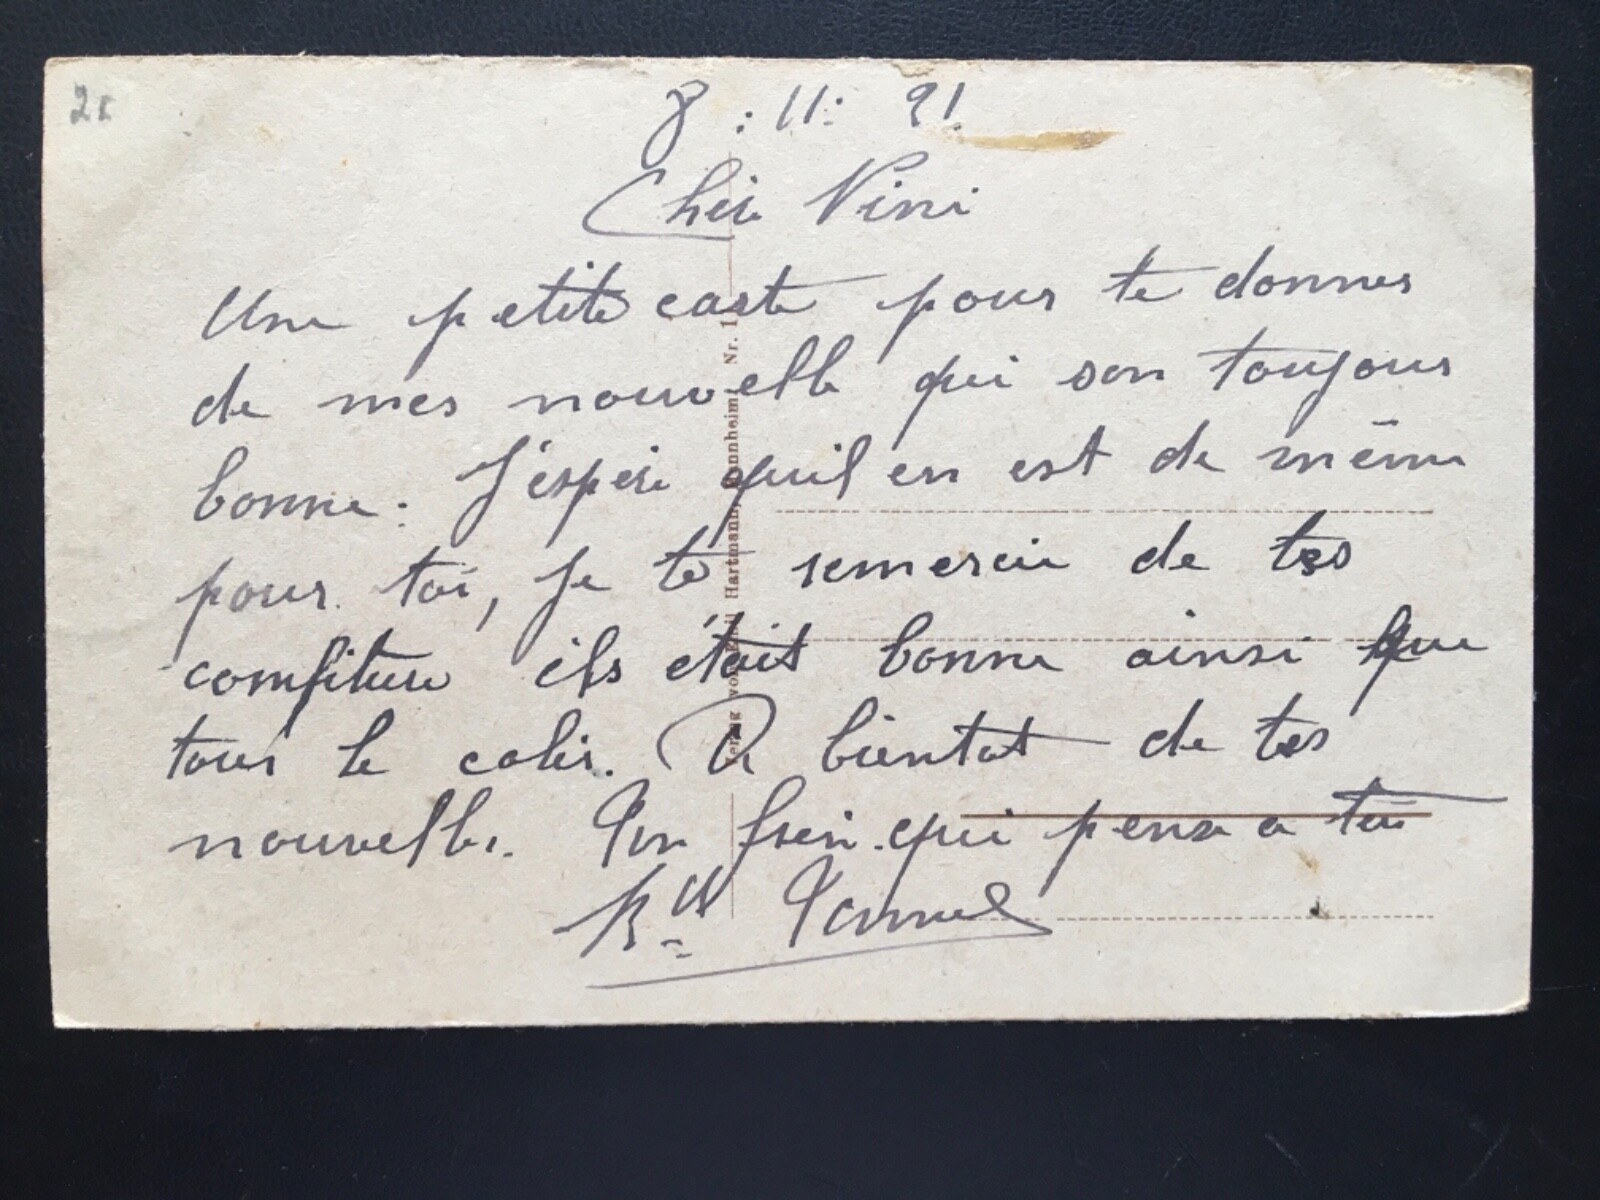 8 : 11 : 21.
Chère Nini
Une petite carte pour te donner
de mes nouvelle qui son toujour
bonne. J'espère quil en est de même
pour toi, Je te remercie de tes
comfiture ils était bonne ainsi que
tour le colis. A bientot de tes
nouvelles. Ton frère qui pense a toi
Verlag von Hartmann, Mannheim. Nr. 1